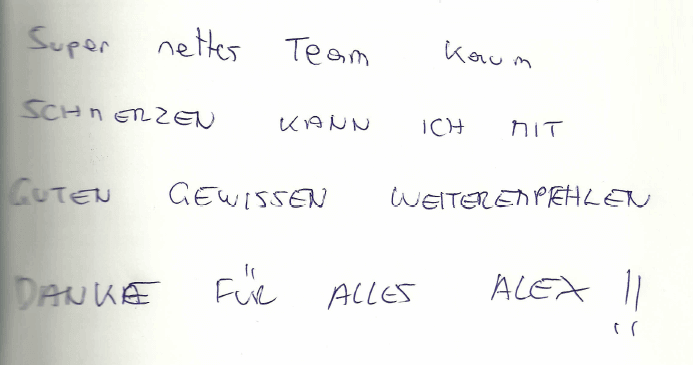 Super nettes Team Kaum
SCHMERZEN KANN ICH MIT
GUTEN GEWISSEN WEITEREMPFEHLEN
DANKE FÜR ALLES ALEX !!